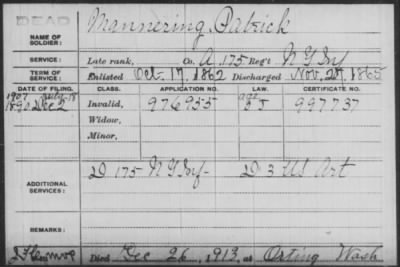 DEAD
NAME OF SOLDIER: Mannering, Patrick
SERVICE: Late rank, Co. A, 175 Reg't N Y Inf
TERM OF SERVICE: Enlisted Oct. 17, 1862 Discharged Nov. 27, 1865
DATE OF FILING. CLASS. APPLICATION NO. LAW. CERTIFICATE NO.
1907
1890 Dec 2 Invalid, 976955 997737
Widow,
Minor,
ADDITIONAL SERVICES: D 175 N Y Inf D 3 US Art
REMARKS:
Died Dec 26, 1913, at Orting Wash